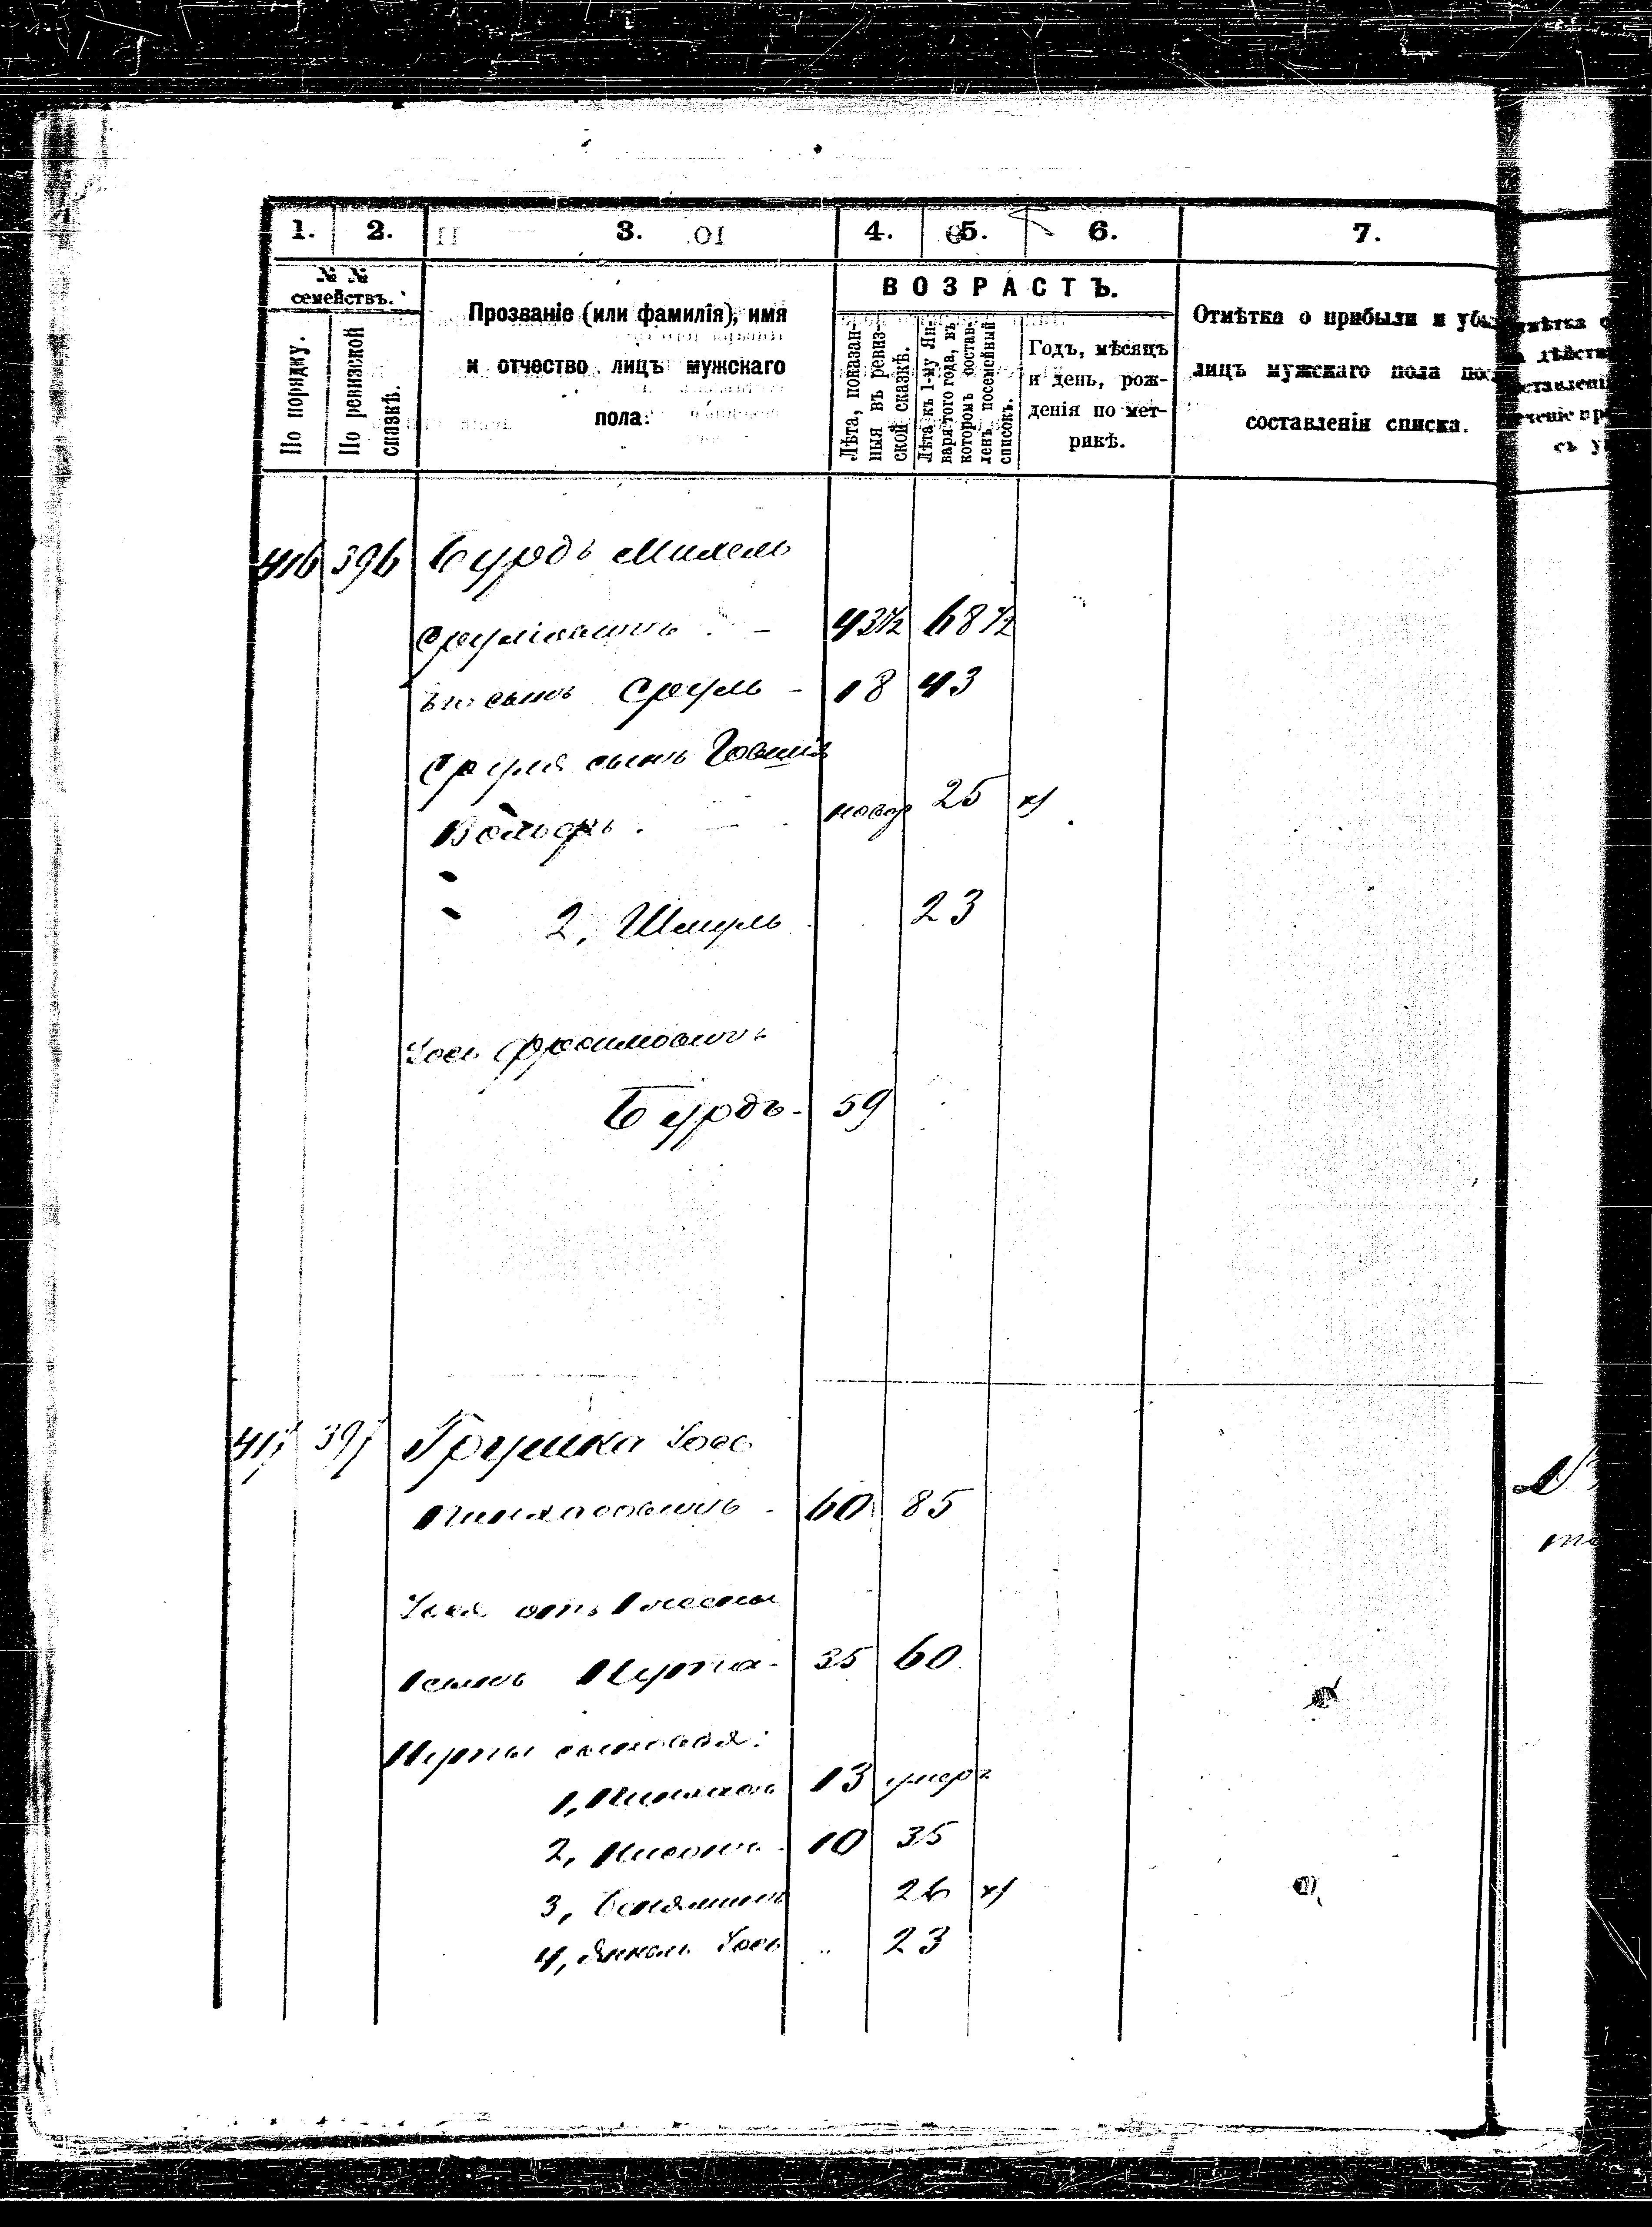 1. 2. 3. 4. 5. 6. 7.
№ №
семействъ.
По порядку.
По ревизской сказкѣ.
Прозваніе (или фамилія), имя
и отчество лицъ мужскаго
пола:
ВОЗРАСТЪ.
Лѣта, показан-
ныя въ ревиз-
ской сказкѣ.
Лѣта къ 1-му Ян-
варя того года, въ
которомъ состав-
ленъ посемейный
списокъ.
Годъ, мѣсяцъ
и день, рож-
денія по мет-
рикѣ.
Отмѣтка о прибыли и
лицъ мужскаго пола
составленія списка.
416 396 Бурдъ Михель
Срулiовичъ 43½ 68½
Его сынъ Сруль 18 43
Сруля сынъ Говшія
Вольфъ новор 25
2, Шмуль 23
Іось Фроимовичъ
Бурдъ 59
417 397 Грушка Іось
Пинхасовичъ 60 85
Іося отъ 1 жены
1 сынъ Нута 35 60
Нуты сыновья:
1, Пинхасъ 13 умеръ
2, Нисонъ 10 35
3, Беніяминъ 26
4, Янкель Іось " 23